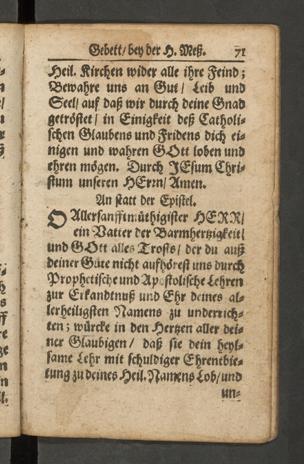 Gebett/ bey der H. Meß. 71
Heil. Kirchen wider alle ihre Feind;
Bewahre uns an Gut/ Leib und
Seel/ auf daß wir durch deine Gnad
getröstet/ in Einigkeit deß Catholi-
schen Glaubens und Fridens dich ei-
nigen und wahren GOtt loben und
ehren mögen. Durch JEsum Chri-
stum unseren HErrn/ Amen.
An statt der Epistel.
O Allersanfftmüthigister HERR/
ein Vatter der Barmhertzigkeit/
und GOtt alles Trosts/ der du auß
deiner Güte nicht aufhörest uns durch
Prophetische und Apostolische Lehren
zur Erkandtnuß und Ehr deines al-
lerheiligsten Namens zu underrich-
ten; würcke in den Hertzen aller dei-
ner Glaubigen/ daß sie dein heyl-
same Lehr mit schuldiger Ehrenbie-
tung zu deines Heil. Namens Lob/ und
un-